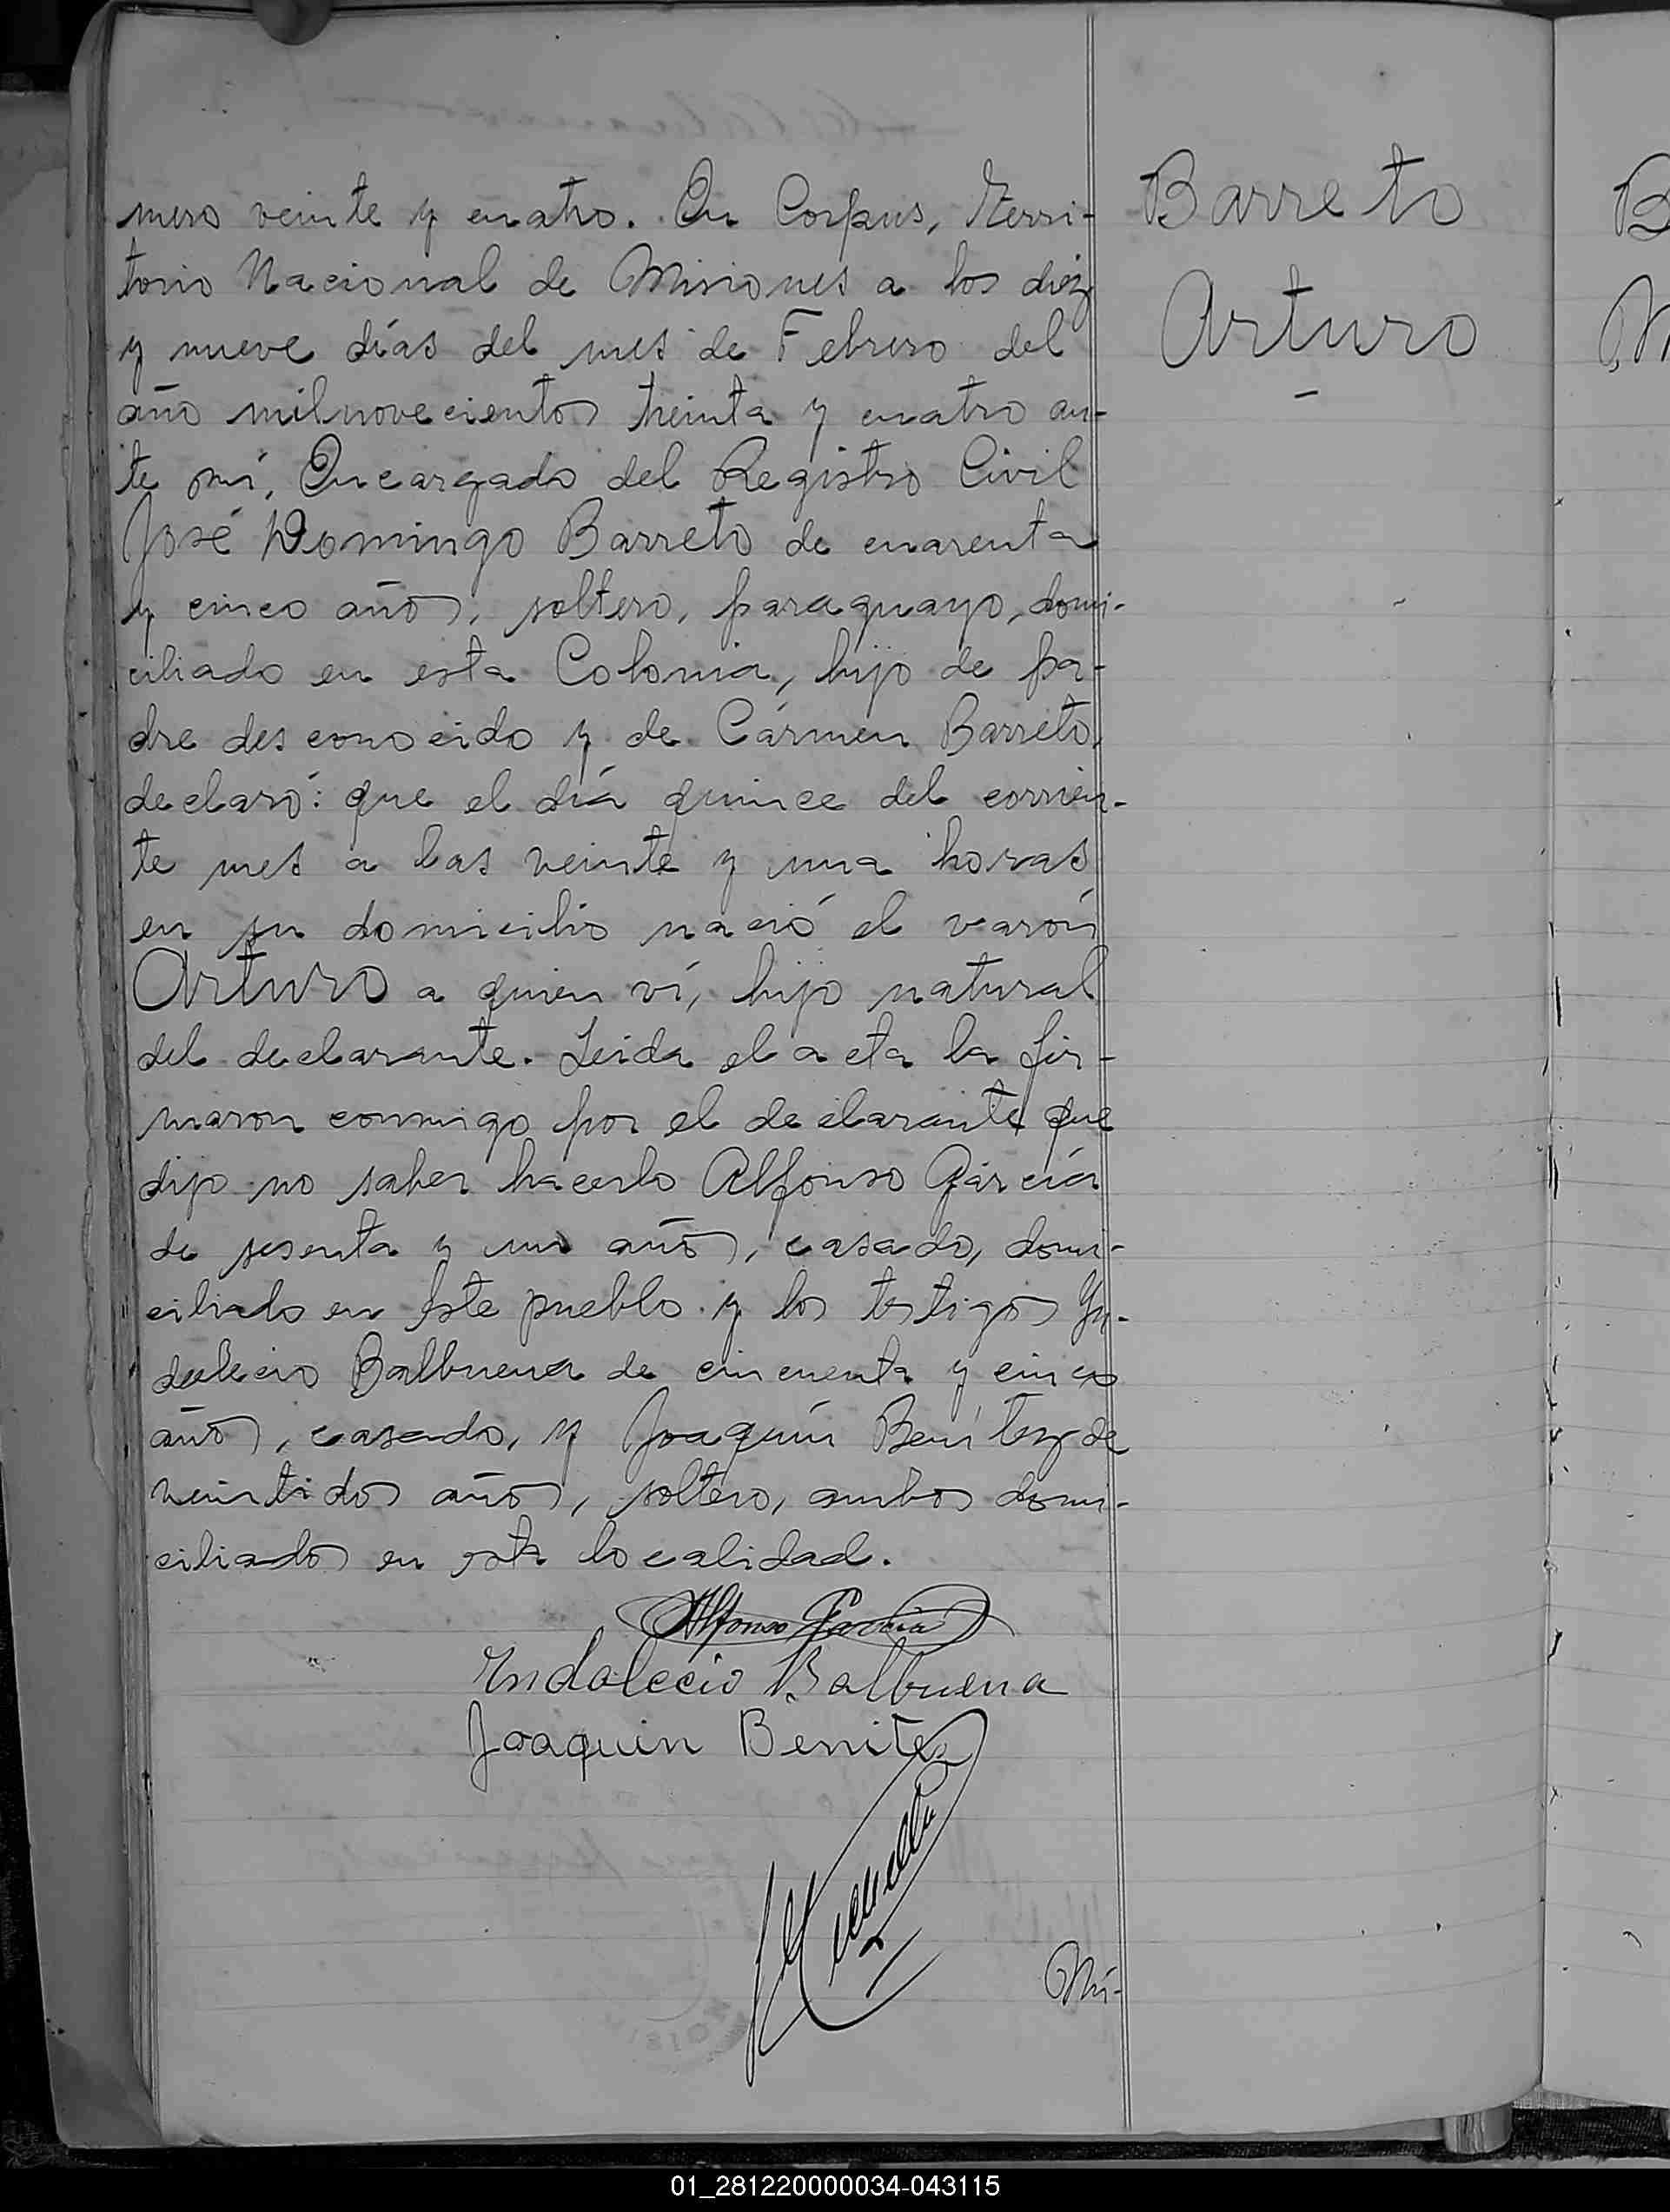 mero veinte y cuatro. En Corpus, Terri-
torio Nacional de Misiones a los diez
y nueve días del mes de Febrero del
año mil novecientos treinta y cuatro an-
te mí, Encargado del Registro Civil
José Domingo Barreto de cuarenta
y cinco años, soltero, paraguayo, domi-
ciliado en esta Colonia, hijo de pa-
dre desconocido y de Cármen Barreto,
declaró: que el día quince del corrien-
te mes a las veinte y una horas
en su domicilio nació el varón
Arturo a quien ví, hijo natural
del declarante. Leida el acta la fir-
maron conmigo por el declarante que
dijo no saber hacerlo Alfonso García
de sesenta y un años, casado, domi-
ciliado en este pueblo y los testigos Yn-
dalecio Balbuena de cincuenta y cinco
años, casado, y Joaquín Benítez de
veintidos años, soltero, ambos domi-
ciliados en esta localidad.
Alfonso Garcia
Yndalecio Balbuena
Joaquin Benitez
Nú-
Barreto
Arturo
B
M
01_281220000034-043115